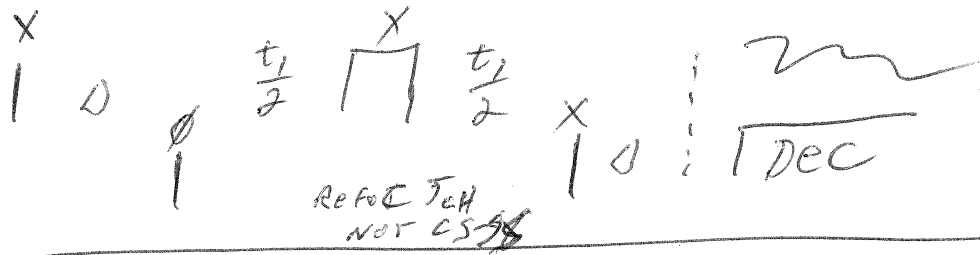 X X
Δ ϕ t₁/2 t₁/2 X Δ DEC
REFOC JCH
NOT CS